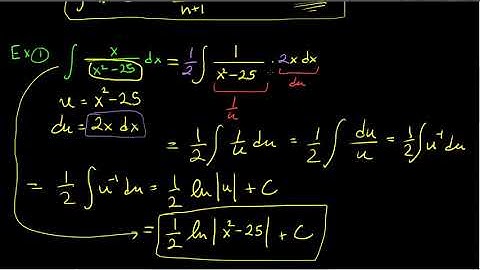 n+1
Ex ① ∫ x/(x²-25) dx = 1/2 ∫ 1/(x²-25) · 2x dx
1/u du
u = x²-25
du = 2x dx
= 1/2 ∫ 1/u du = 1/2 ∫ du/u = 1/2 ∫ u⁻¹ du
= 1/2 ∫ u⁻¹ du = 1/2 ln|u| + C
= 1/2 ln|x²-25| + C